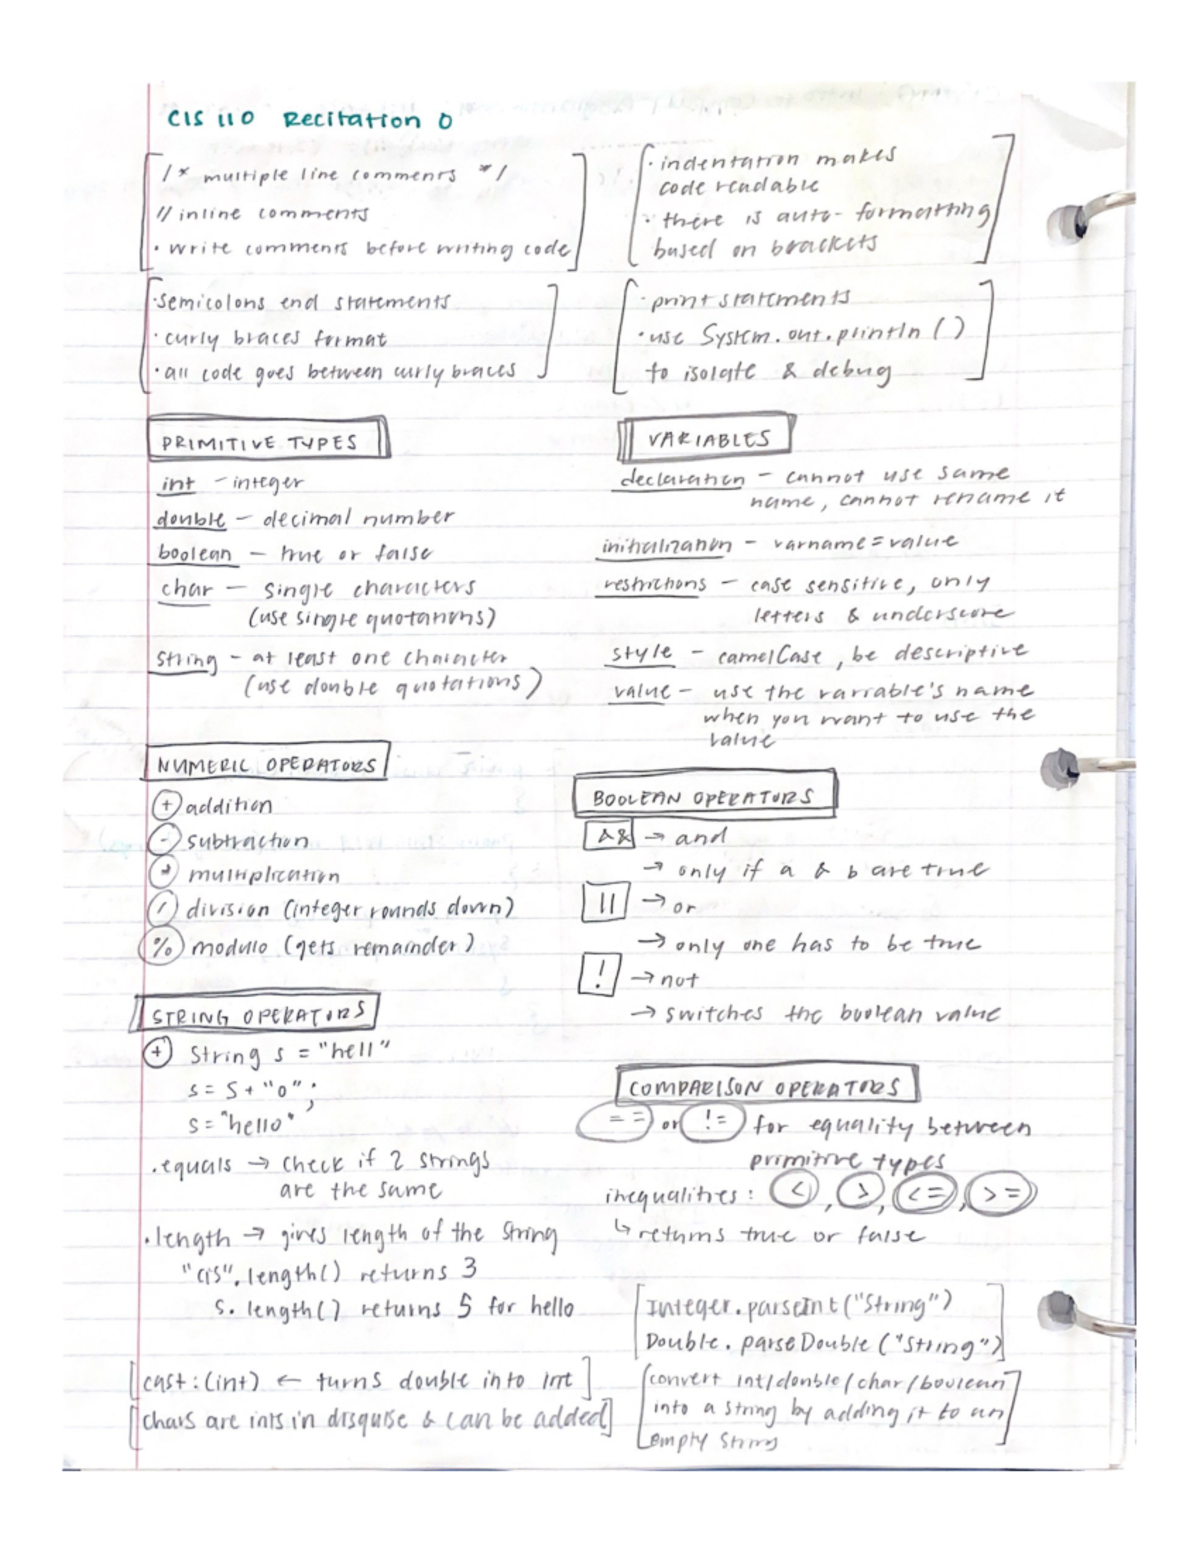 CIS 110 Recitation 0
/* multiple line comments */
// inline comments
· write comments before writing code
· indentation makes
code readable
· there is auto-formatting
based on brackets
· semicolons end statements
· curly braces format
· all code goes between curly braces
· print statements
· use System.out.println()
to isolate & debug
PRIMITIVE TYPES
int - integer
double - decimal number
boolean - true or false
char - single characters
(use single quotations)
string - at least one character
(use double quotations)
VARIABLES
declaration - cannot use same
name, cannot rename it
initialization - varname=value
restrictions - case sensitive, only
letters & underscore
style - camelCase, be descriptive
value - use the variable's name
when you want to use the
value
NUMERIC OPERATORS
+ addition
- subtraction
* multiplication
/ division (integer rounds down)
% modulo (gets remainder)
BOOLEAN OPERATORS
&& → and
→ only if a & b are true
|| → or
→ only one has to be true
! → not
→ switches the boolean value
STRING OPERATORS
+ String s = "hell"
s = s + "o";
s = "hello"
.equals → check if 2 strings
are the same
.length → gives length of the string
"cis".length() returns 3
s.length() returns 5 for hello
COMPARISON OPERATORS
== or != for equality between
primitive types
inequalities: <, >, <=, >=
↳ returns true or false
Integer.parseInt("String")
Double.parseDouble("String")
cast: (int) ← turns double into int
chars are ints in disguise & can be added
convert int/double/char/boolean
into a string by adding it to an
empty string